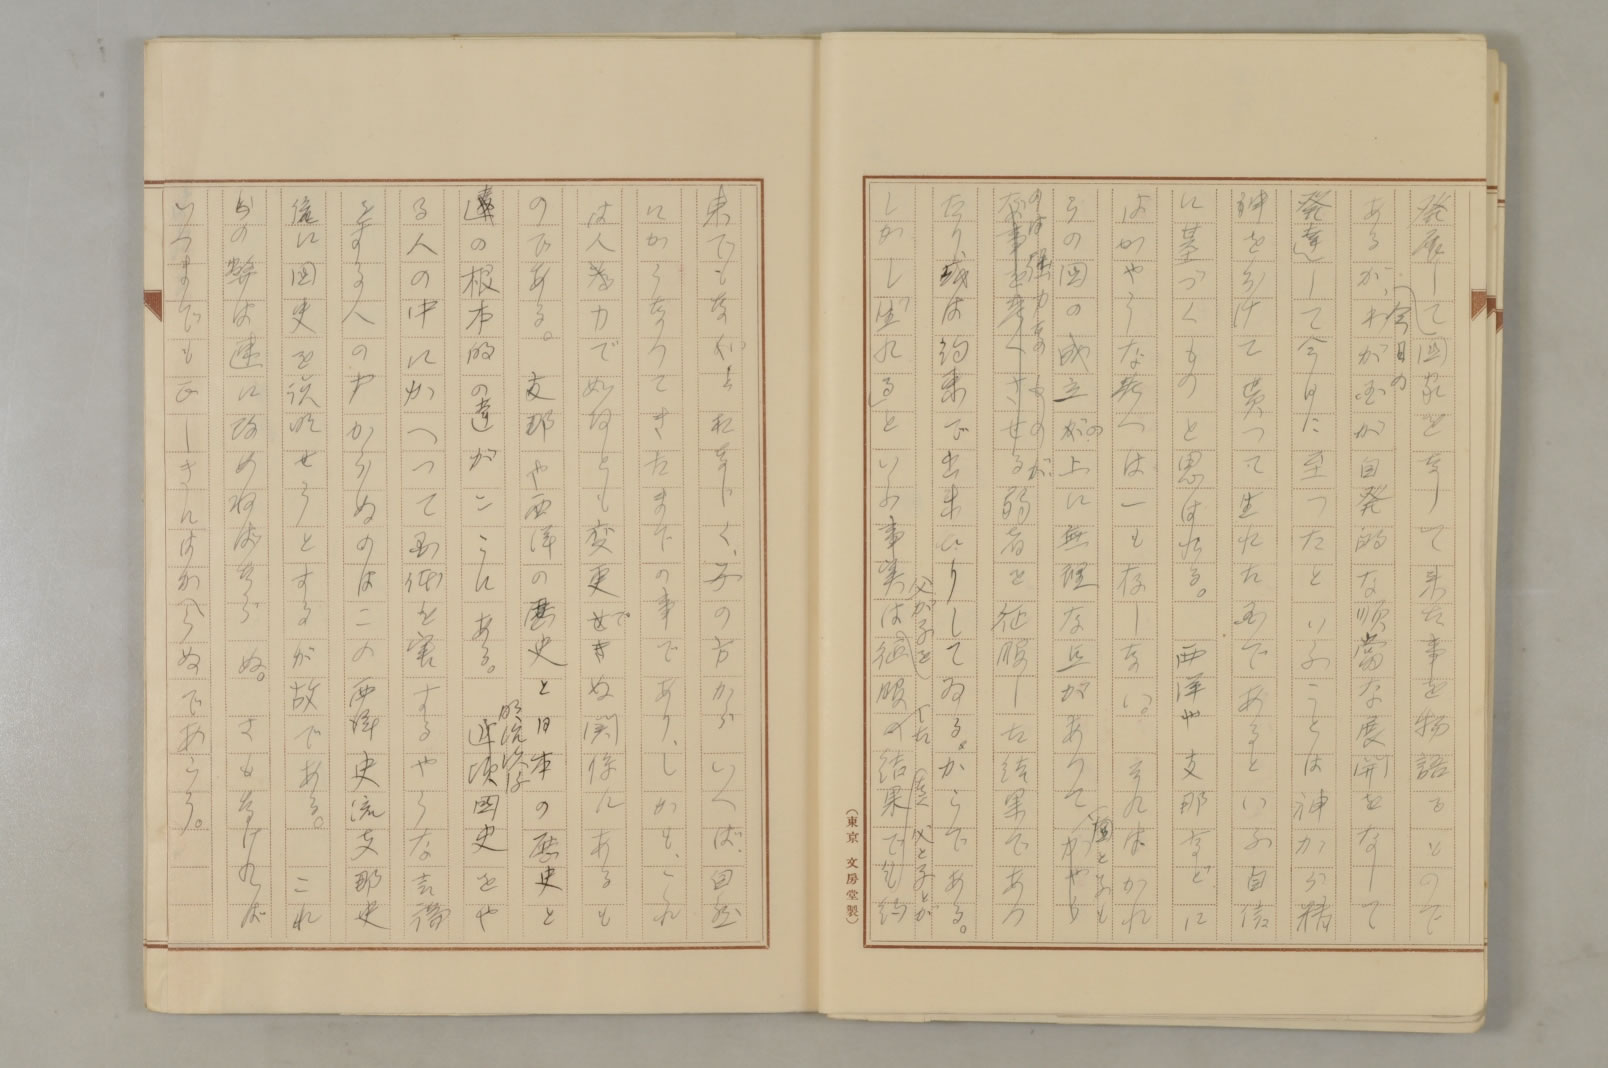 発展して国家をなして来た事を物語るもので
あるが、わが国が自発的な順当な展開をなして
今日の
発達して今日に至つたといふことは神から精
神を分けて貰つて生れた国であるといふ自信
に基づくものと思はれる。 西洋や支那などに
はかやうな考へは一も存しない。それはかれ
らの国の成立が上に無理な点があつて
の
国と名も
のは強力なものが
弱者を征服した結果であつ
たり、或は約束で出来たりしてゐるからである。
しかし生れるといふ事実は征服の結果でも約
父が子を
父と子とが
(東京 文房堂製)
束でもない
子の方からいへば、自然
にかうなつてきたまでの事であり、しかも、これ
は人為力で如何とも変更できぬ関係にあるも
のである。 支那や西洋の歴史と日本の歴史と
の根本的の違がこゝにある。 近頃国史をや
明治以後
る人の中にかへつて国体を害するやうな言論
をする人の少からぬのはこの西洋史流支那史
流に国史を説明せうとするが故である。 これ
らの弊は速に改めねばならぬ。 さもなければ
いつまでも正しき
わからぬであらう。